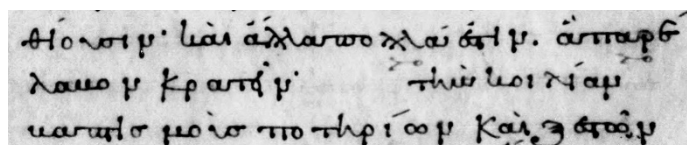 θίουσιν· καὶ ἄλλα πολλά ἐστὶν. ἃ παρέ
λαβον κρατεῖν· τὴν κοιλίαν
βαπτισμοὺσ ποτηρίων καὶ ξεστῶν